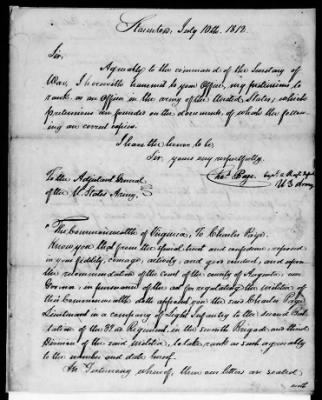 Staunton, July 10th. 1812.
Sir,
Agreeably to the command of the Secretary of
War, I herewith transmit to your Office, my pretensions to
rank as an Officer in the army of the United States; which
pretensions are founded on the documents, of which the follow-
ing are correct copies.
I have the honor to be,
Sir, yours very respectfully,
To the Adjutant General
of the U. States Army.
U S Army
The Commonwealth of Virginia, To Charles
Know you that from the special trust and confidence, reposed
in your fidelity, courage, activity, and good conduct, and upon
the recommendation of the court of the county of Augusta, our
Governor, in pursuance of the act for regulating the militia of
this Commonwealth doth appoint you the said Charles
Lieutenant in a company of Light Infantry to the second Bat-
talion of the Regiment, in the seventh Brigade, and third
Division of the said militia, to take rank as such agreeably
to the number and date hereof.
In Testimony whereof, these our letters are sealed
with